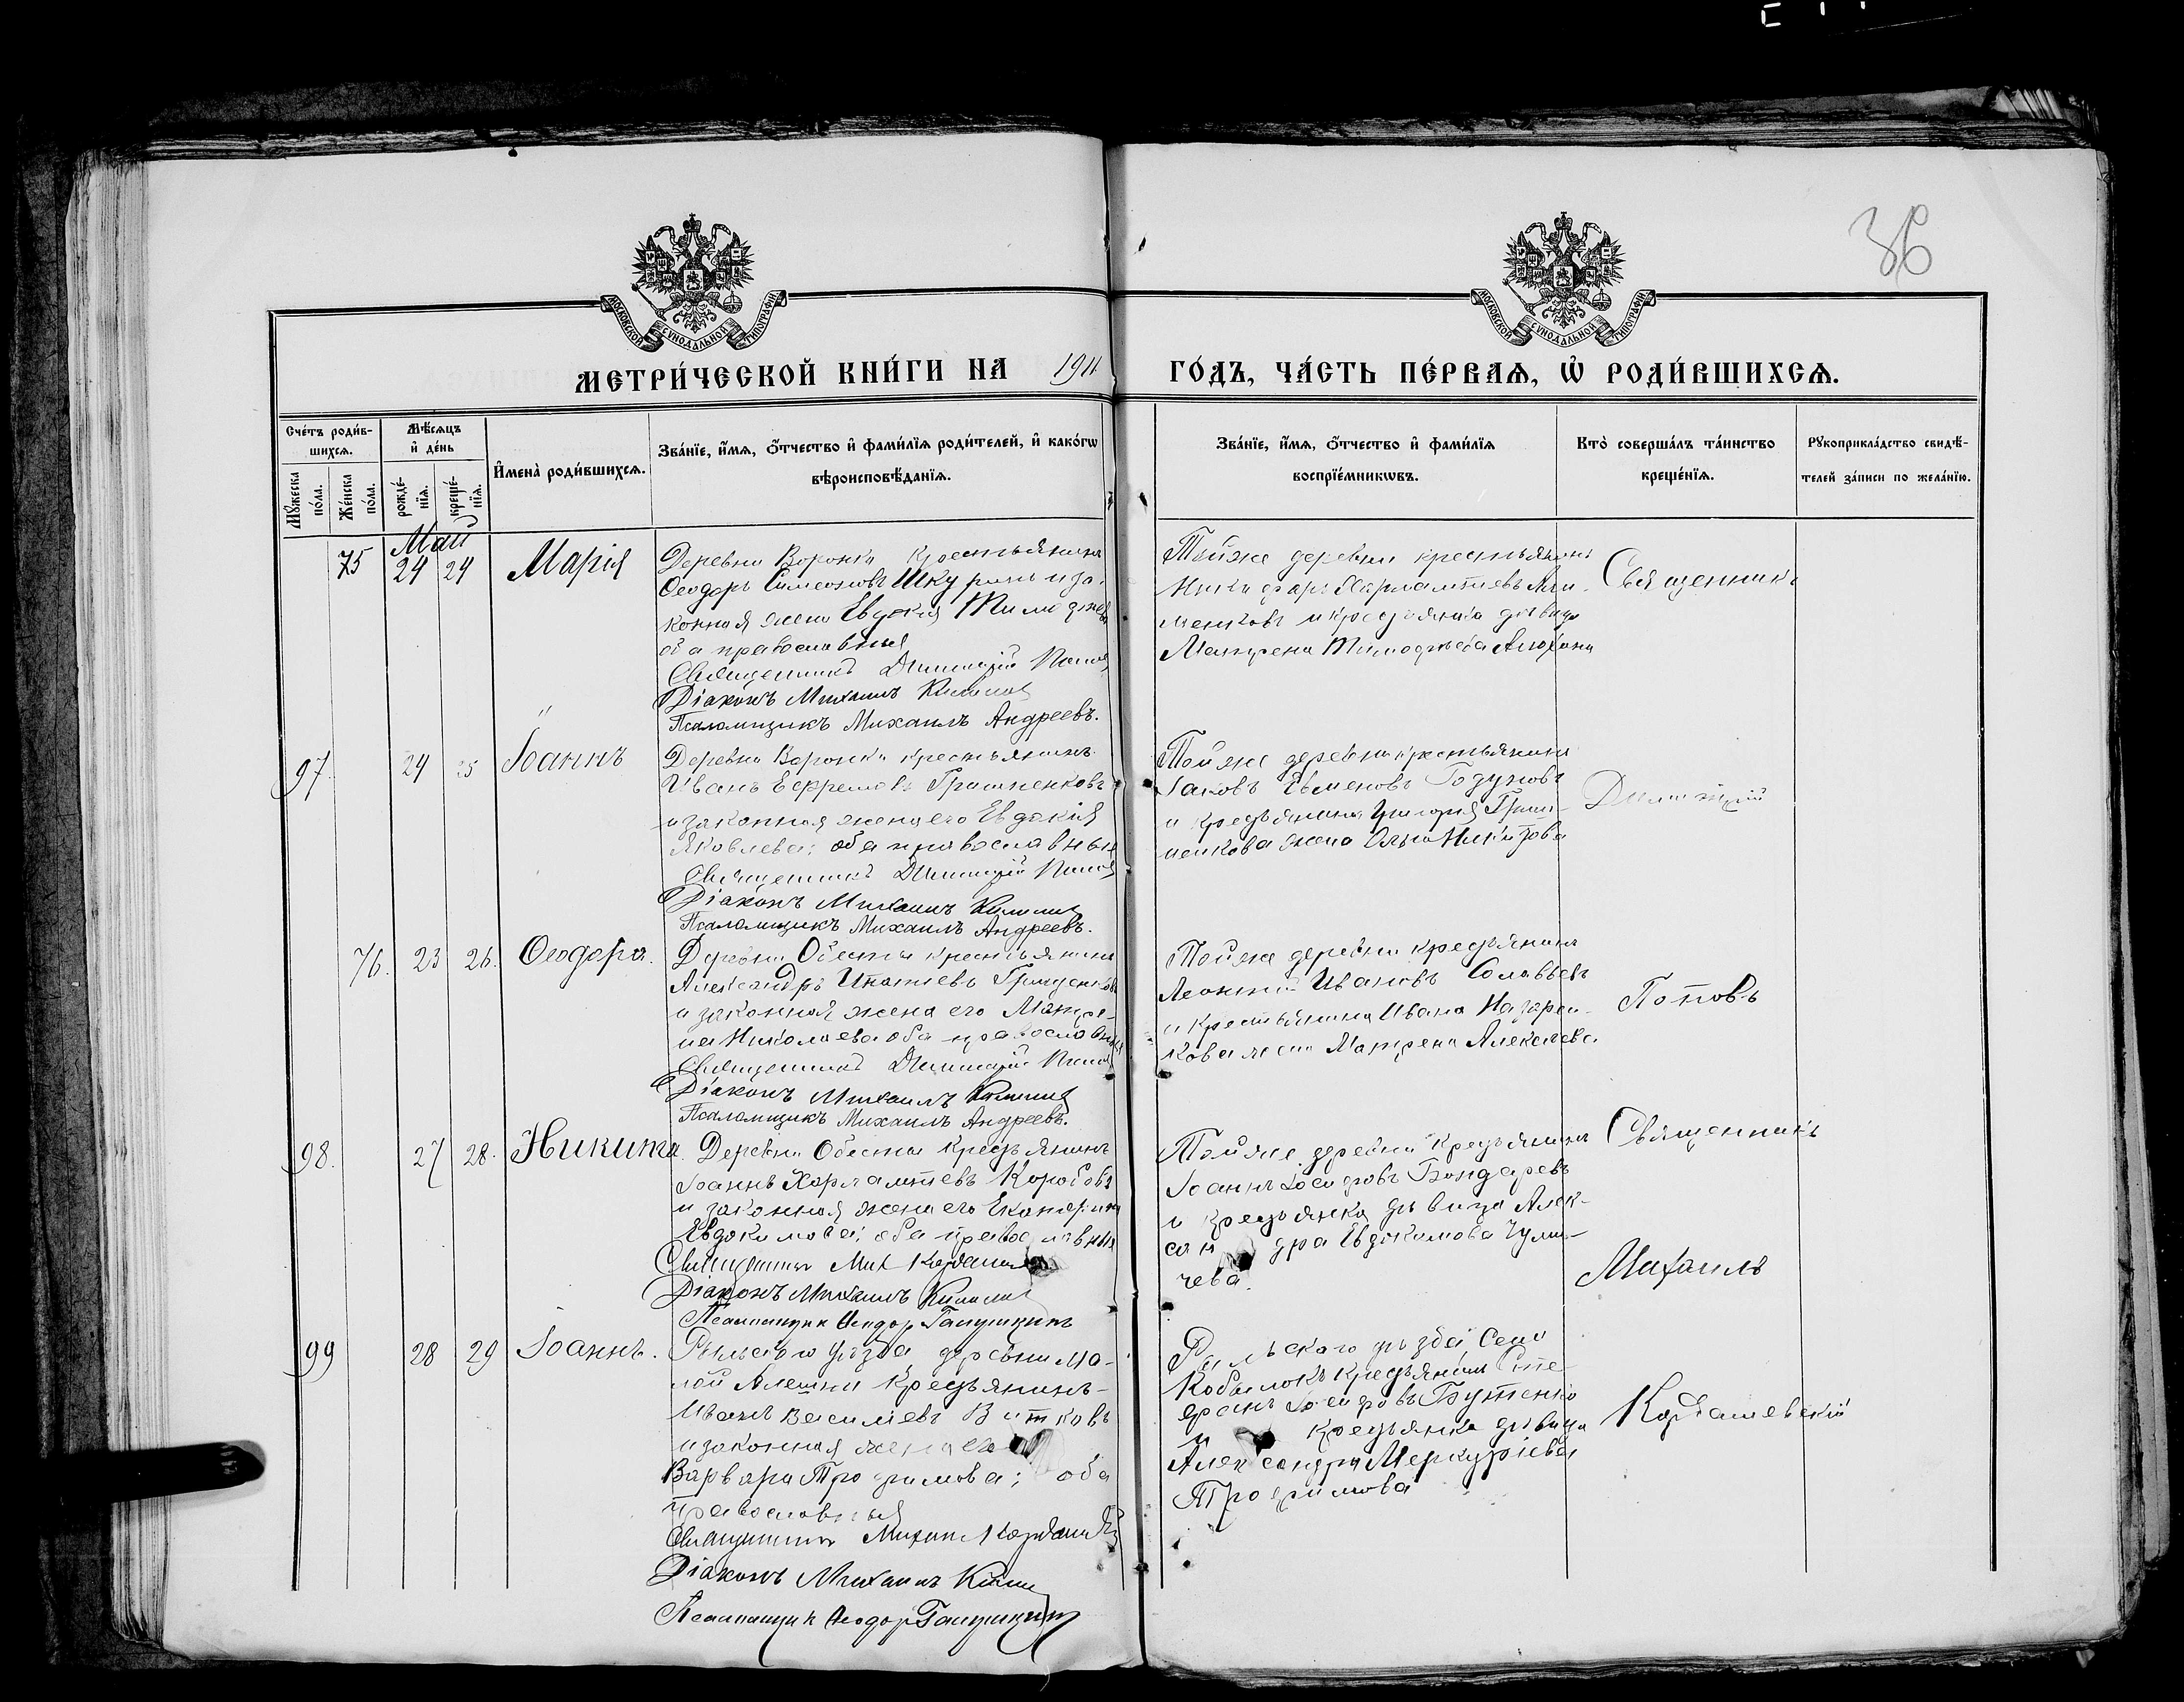 36
МОСКОВСКОЙ СѴНОДАЛЬНОЙ ТИПОГРАФІИ
МОСКОВСКОЙ СѴНОДАЛЬНОЙ ТИПОГРАФІИ
МЕТРИ́ЧЕСКОЙ КНИ́ГИ НА 1911 ГО́ДЪ, ЧА́СТЬ ПЕ́РВАѦ, Ѽ РОДИ́ВШИХСѦ.
Сче́тъ роди́в-
шихсѧ.
Мꙋ́жеска по́ла.
Же́нска по́ла.
Мѣ́сѧцъ
и҆ де́нь
рожде́-
нїѧ.
креще́-
нїѧ.
И҆мена̀ роди́вшихсѧ.
Зва́нїе, и҆́мѧ, ѻ҆́тчество и҆ фами́лїѧ роди́телей, и҆ како́гѡ
вѣроисповѣ́данїѧ.
Зва́нїе, и҆́мѧ, ѻ҆́тчество и҆ фами́лїѧ
воспрїе́мникѡвъ.
Кто̀ соверша́лъ та́инство
креще́нїѧ.
Рꙋкоприкла́дство свидѣ́-
телей за́писи по жела́нїю.
Май
75 24 24 Марія
Деревни Воронки крестьянинъ
Ѳеодоръ Симеоновъ Шкуринъ и за-
конная жена Евдокія
оба православныя
Священникъ Димитрій Поповъ
Діаконъ Михаилъ
Псаломщикъ Михаилъ Андреевъ.
Тойже деревни крестьянинъ
Никифоръ Харлампіевъ
и крестьянка дѣвица
Матрена Тимофѣева
Священникъ
97 24 25 Іоаннъ
Деревни Воронки крестьянинъ
Иванъ Ефремовъ Гришненковъ
и законная жена его Евдокія
Яковлева; оба православные
Священникъ Димитрій Поповъ
Діаконъ Михаилъ
Псаломщикъ Михаилъ Андреевъ.
Тойже деревни крестьянинъ
Іаковъ Годуновъ
и крестьянина Григорія Гриш-
ненкова жена Ольга Никитова
Димитрій
76. 23 26. Ѳеодора.
Деревни Обесты крестьянинъ
Александръ Игнатіевъ Грищенковъ
и законная жена его Матре-
на Николаева оба православныя
Священникъ Димитрій Поповъ
Діаконъ Михаилъ
Псаломщикъ Михаилъ Андреевъ.
Тойже деревни крестьянинъ
Леонтій Ивановъ Солавьевъ
и крестьянина Ивана Назарен-
кова жена Матрена Алексѣева
Поповъ
98. 27 28. Никита.
Деревни Обесты крестьянинъ
Іоаннъ Харлампіевъ Коробовъ
и законная жена его Екатерина
Евдокимова; оба православныя
Священникъ Мих Кардашевскій
Діаконъ Михаилъ
Псаломщикъ Ѳеодоръ
Тойже деревни крестьянинъ
Іоаннъ Іосифовъ Бондаревъ
и крестьянка дѣвица Алек-
сандра Евдокимова
чева.
Священникъ
Михаилъ
99 28 29 Іоаннъ.
Рыльскаго уѣзда деревни Ма-
лой Алешни крестьянинъ
Иванъ Василіевъ
и законная жена его
Варвара Трофимова; оба
православныя
Священникъ Михаилъ Кардашевскій
Діаконъ Михаилъ
Псаломщикъ Ѳеодоръ
Рыльскаго уѣзда, села
Кобылокъ крестьянинъ Сте-
фанъ Іосифовъ Бутенко
и крестьянка дѣвица
Александра Меркуріева
Трофимова
Кардашевскій